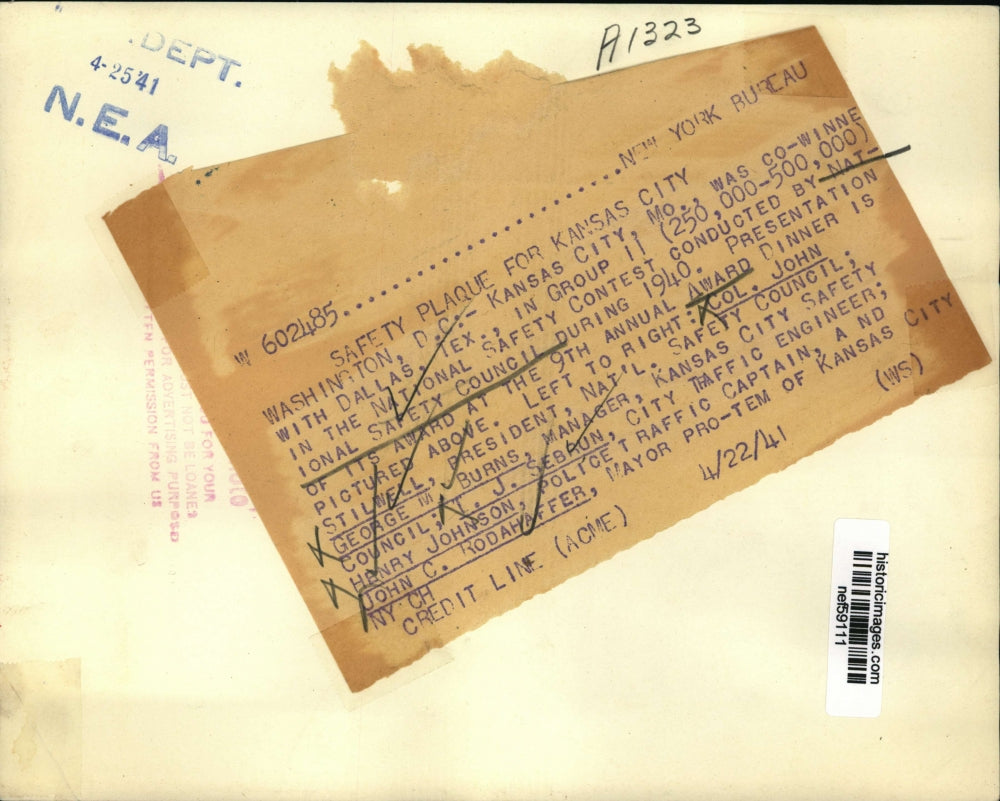 A1323
.DEPT.
4-25 41
N.E.A.
W 602485 NEW YORK BUREAU
SAFETY PLAQUE FOR KANSAS CITY
WASHINGTON, D.C.- KANSAS CITY, MO., WAS CO-WINNE
WITH DALLAS, TEX., IN GROUP II (250,000-500,000)
IN THE NATIONAL SAFETY CONTEST CONDUCTED BY NAT-
IONAL SAFETY COUNCIL DURING 1940. PRESENTATION
OF ITS AWARD AT THE 9TH ANNUAL AWARD DINNER IS
PICTURED ABOVE. LEFT TO RIGHT: COL. JOHN
STILWELL, PRESIDENT, NAT'L. SAFETY COUNCIL;
GEORGE M. BURNS, MANAGER, KANSAS CITY SAFETY
COUNCIL; T. J. SEBURN, CITY TRAFFIC ENGINEER;
HENRY JOHNSON, POLICE TRAFFIC CAPTAIN, A ND
JOHN C. RODAHAFFER, MAYOR PRO-TEM OF KANSAS CITY
NY CH (WS)
CREDIT LINE (ACME) 4/22/41
FOR YOUR
NOT BE LOANED
OR ADVERTISING PURPOSE
TEN PERMISSION FROM US
historicimages.com
nef59111